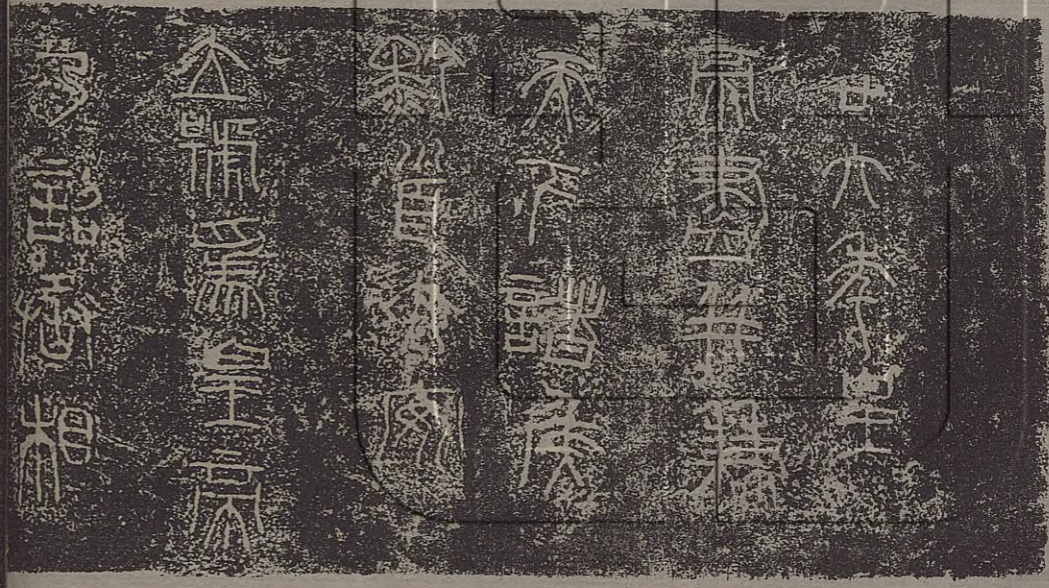 廿六年皇
帝盡并兼
天下諸侯
黔首大安
立號為皇帝
乃詔丞相